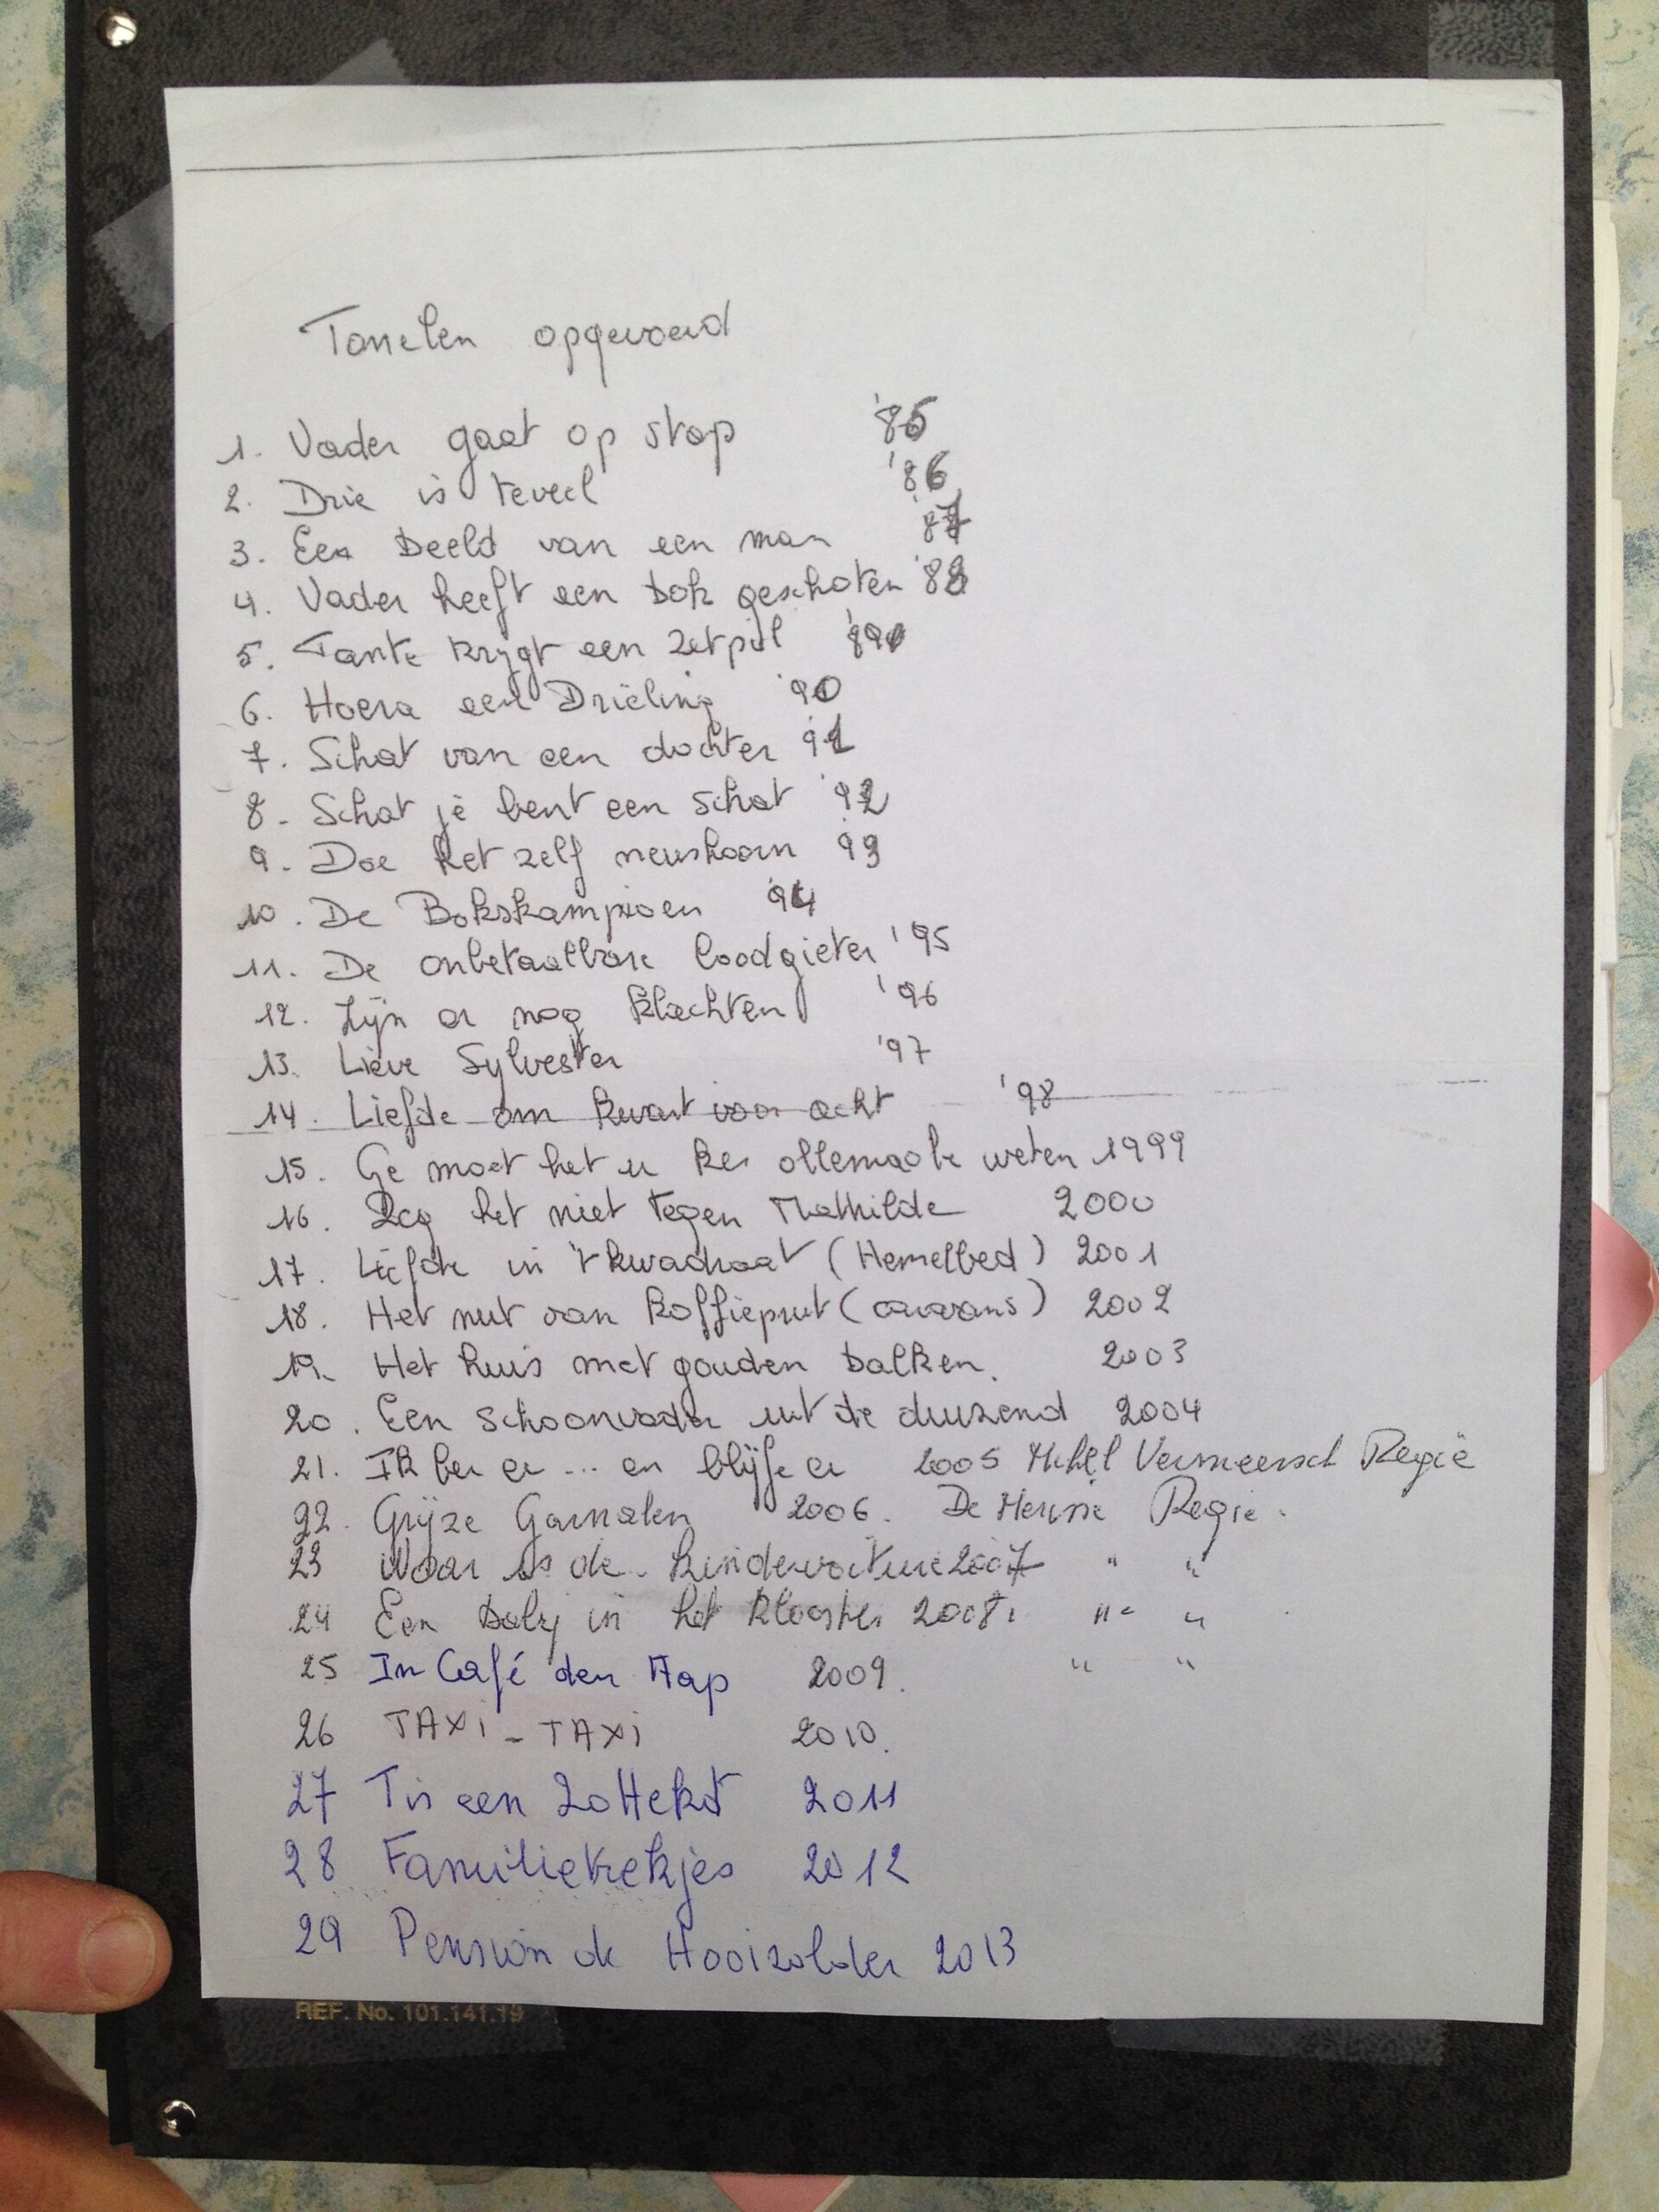 Tonelen opgevoerd
1. Vader gaat op stap '85
2. Drie is teveel '86
3. Een beeld van een man '87
4. Vader heeft een bok geschoten '88
5. Tante krijgt een zetpil '89
6. Hoera een Drieling '90
7. Schat van een dochter '91
8. Schat je bent een schat '92
9. Doe het zelf neushoorn '93
10. De Bokskampioen '94
11. De onbetaalbare loodgieter '95
12. Zijn er nog klachten '96
13. Lieve Sylvester '97
14. Liefde om kwart voor acht '98
15. Ge moet het u kei allemaole weten 1999
16. Zeg het niet tegen Mathilde 2000
17. Liefde in 't kwadraat (Hemelbed) 2001
18. Het nut van koffieprut (caravans) 2002
19. Het huis met gouden balken. 2003
20. Een schoonvader uit de duizend 2004
21. Ik ben er ... en blijf er 2005 Vermeersch Regie
22. Grijze Garnalen 2006. De Regie.
23 Waar is de kindervoiture 2007 " "
24 Een baby in het klooster 2008. " "
25 In Café den Aap 2009. " "
26 TAXI - TAXI 2010.
27 Tis een Zottekot 2011
28 Familietrekjes 2012
29 Pension de Hooizolder 2013
REF. No. 101.141.19